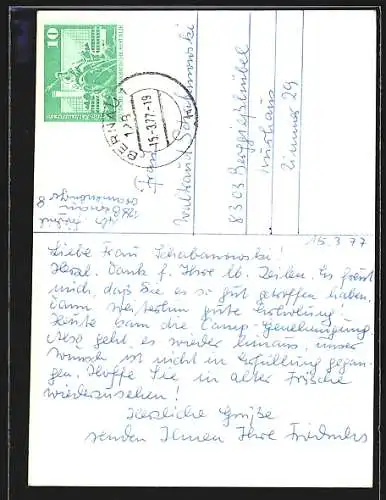 10
BERNAU
-15.3.77-19
Frau
Waltraud Schabanowski
8303 Berggießhübel
Kurhaus
Zimmer 29
128 Bernau
15.3.77
Liebe Frau Schabanowski!
Herzl. Dank f. Ihre lb. Zeilen. Es freut
mich, daß Sie es so gut getroffen haben.
Dann weiterhin gute Erholung!
Heute kam die Camp.-Genehmigung
Also geht es wieder hinaus, unser
Wunsch ist nicht in Erfüllung gegan-
gen. Hoffe Sie in alter Frische
wiederzusehen!
Herzliche Grüße
senden Ihnen Ihre